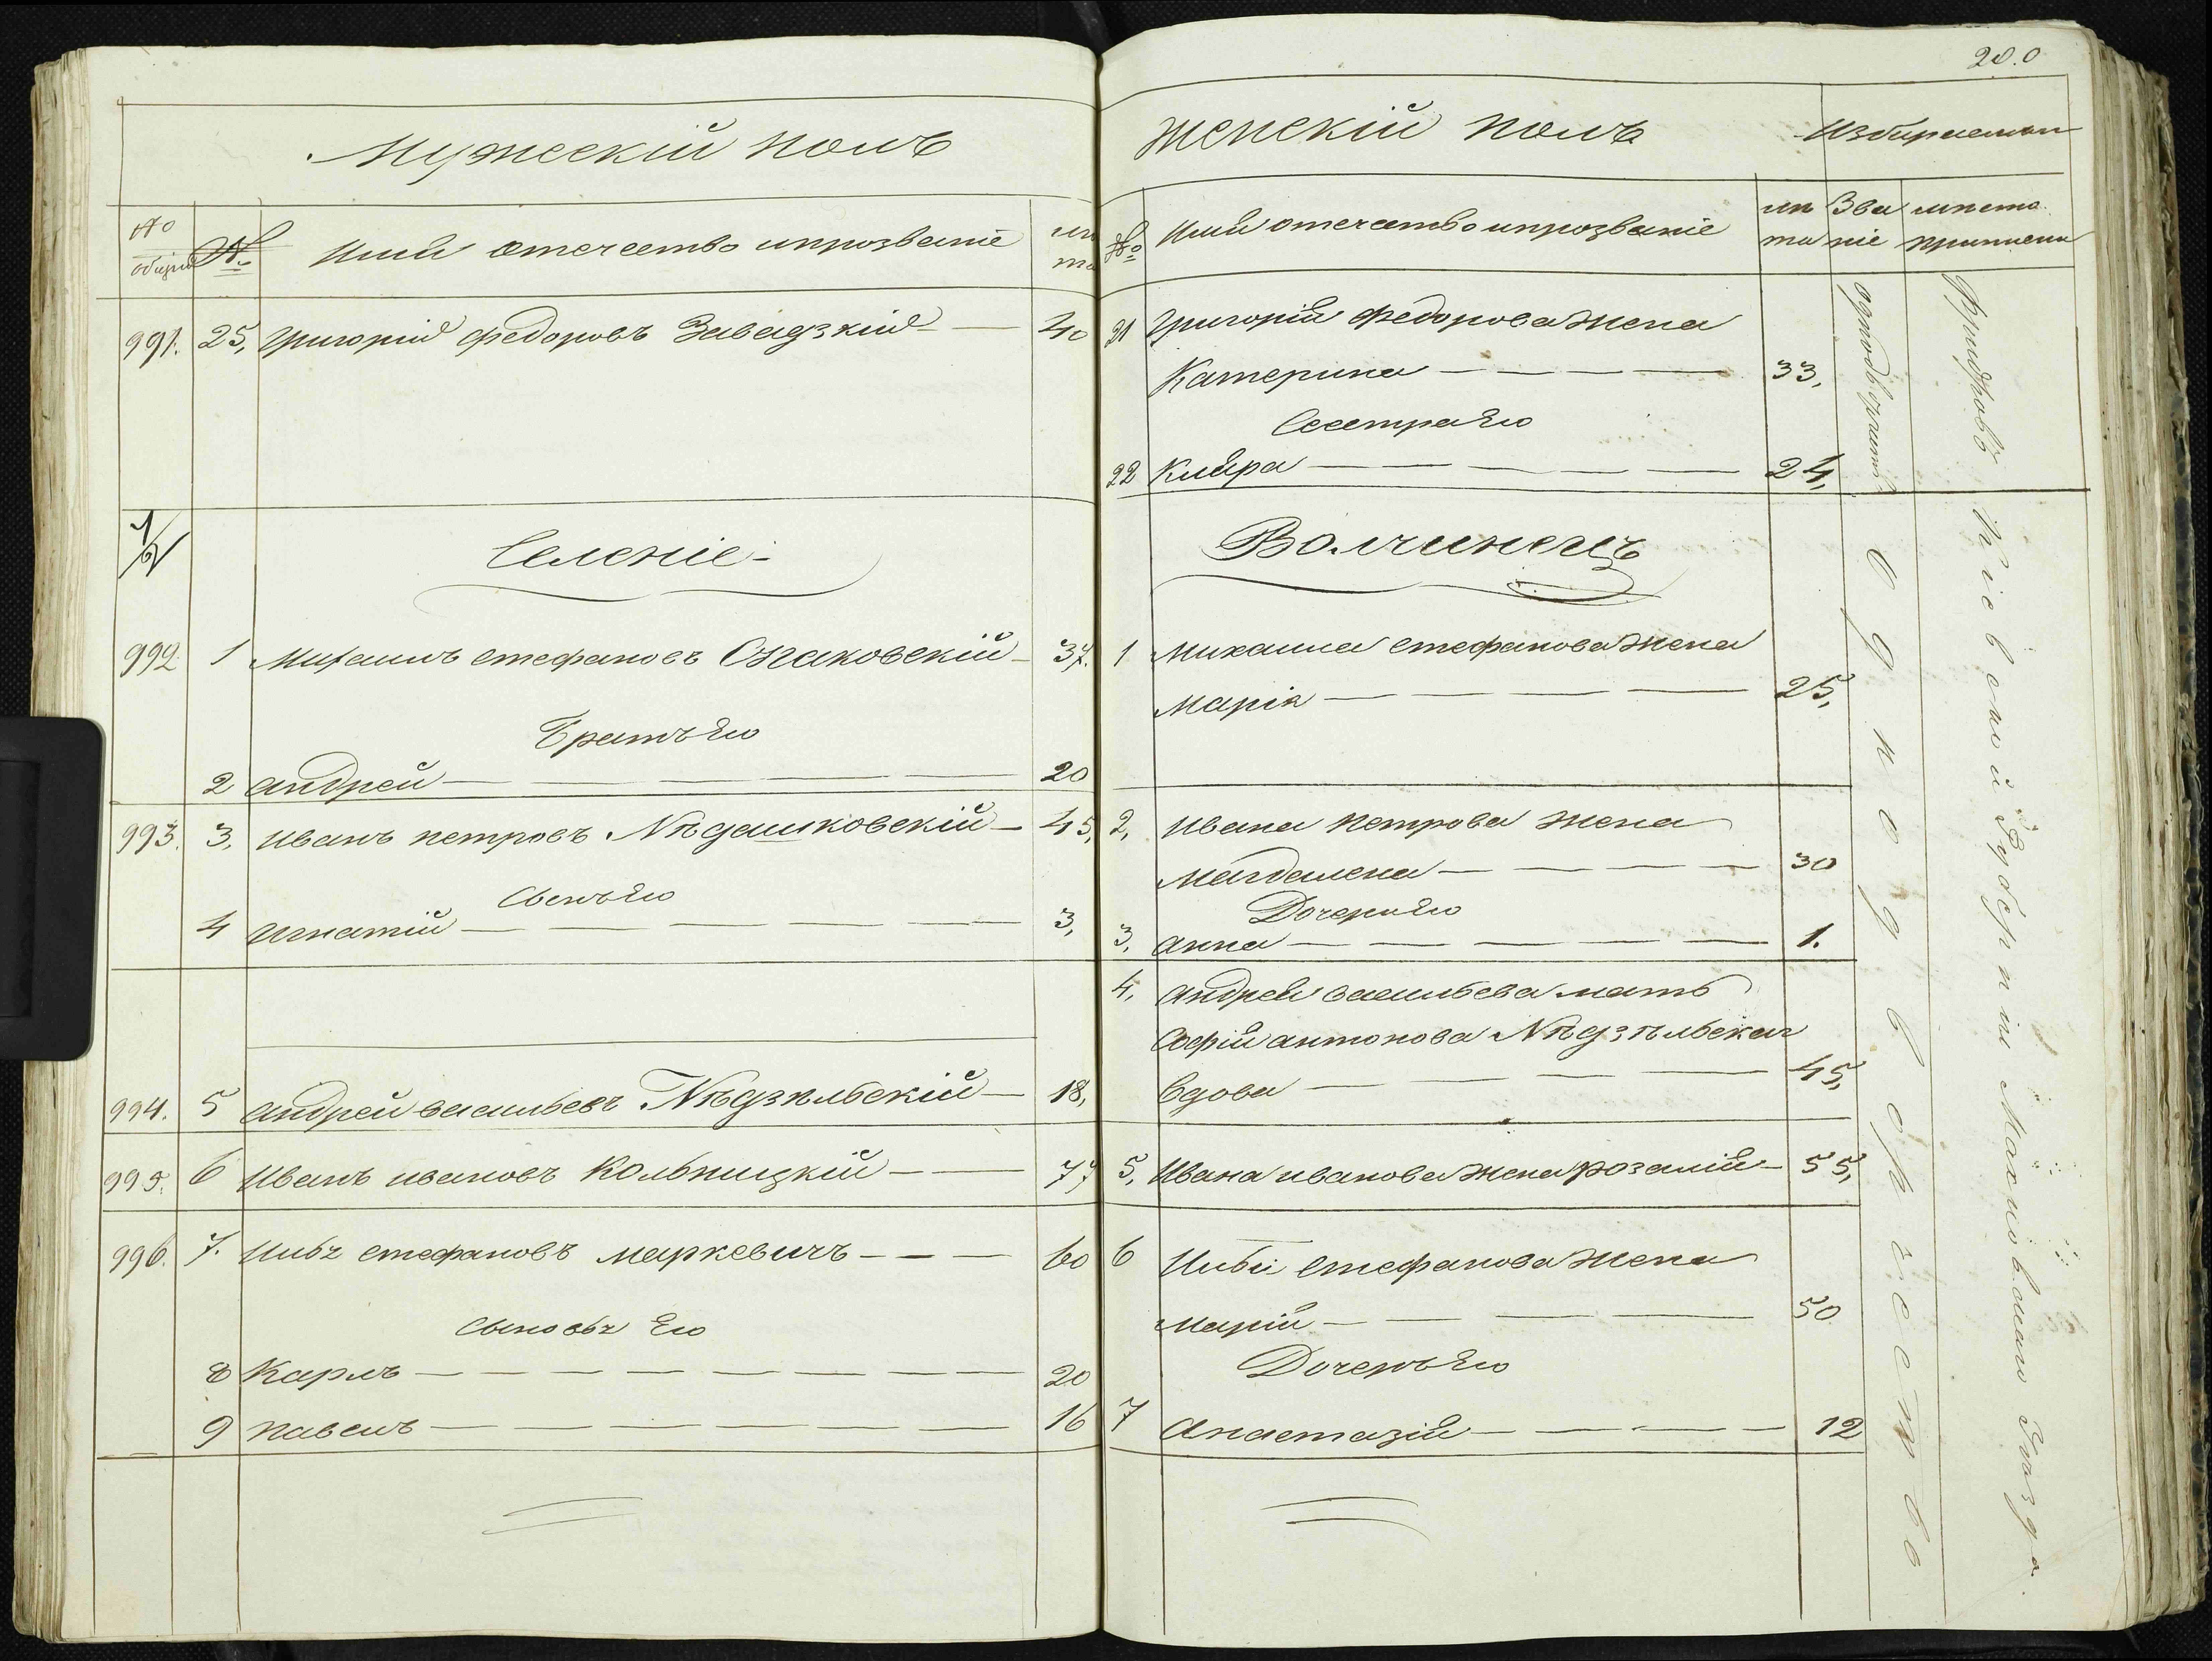 200
Мужескій полъ
№ общій
№
Имя отечество и прозваніе
лѣта
991. 25, Григорій Федоровъ Завадзкій — 40
Селеніе
992 1 Михаилъ Стефановъ Очаковскій — 37.
Братъ Его
2 Андрей — — — — 20
993. 3, Иванъ Петровъ Нѣдашковскій — 45,
Сынъ Его
4 Игнатій — — — — 3,
994. 5 Андрей Васильевъ Нѣдзѣльскій — 18,
995. 6 Иванъ Ивановъ Кольницкій — — 77
996. 7. Стефановъ Маркевичъ — — — 60
Сыновья Его
8 Карлъ — — — — — — — 20
9 Павелъ — — — — — — 16
Женскій полъ
Избираемыя
№
Имя отечество и прозваніе
лѣта
Званіе
мѣста приписки
21 Григорія Федорова жена
Катерина — — — — 33,
Сестра Его
22 Кляра — — — — — 24,
однодворчество
Волчинецъ
1 Михаила Стефанова жена
Марія — — — — 25,
2, Ивана Петрова жена
Магдалена — — — — 30
Дочери Его
3, Анна — — — — — 1.
4, Андрея Васильева мать
Софія Антонова Нѣдзѣльская
Вдова — — — — 45,
5, Ивана Иванова жена Розалія — 55,
6 Стефанова жена
Марія — — — — 50
Дочерь Его
7 Анастазія — — — — 12
Однодворчество
Кіевской Губерніи Махновскаго Уѣзда.